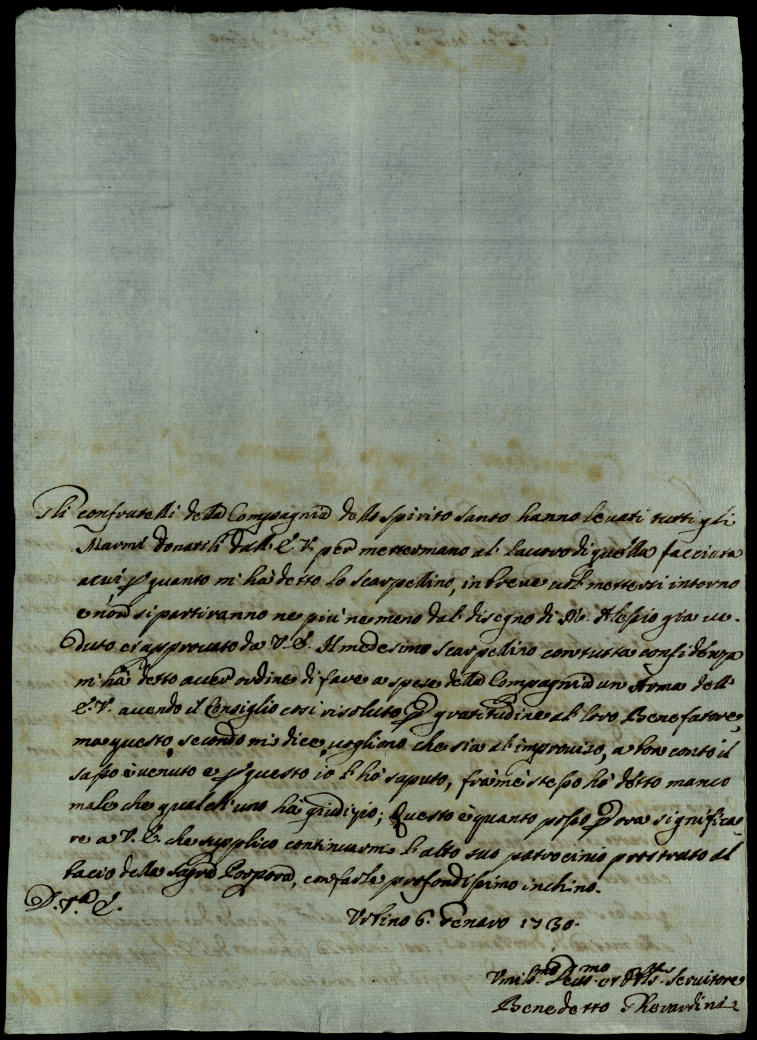 Gli confratelli della Compagnia dello Spirito Santo hanno levati tutti gli
Marmi donatili dall' E. V. per metter mano al lavoro di quella facciata
a cui p quanto mi hà detto lo scarpellino, in breve
mettersi intorno
e non si partiranno ne più ne meno dal disegno di Alessio già ve-
duto et approvato da V. E. Il medesimo scarpellino con tutta confidenza
mi hà detto aver ordine di fare a spese della Compagnia un Arma dell'
E. V. avendo il Consiglio così risoluto p gratitudine al loro Benefatore,
ma questo, secondo mi dice, vogliono che sia al improviso, a bon conto il
sasso è venuto e p questo io l' hò saputo, frà me stesso hò detto manco
male che qualch' uno hà giudizio; Questo è quanto posso p ora significa-
re a V. E. che supplico continuarmi l' alto suo patrocinio prostrato al
bacio della Sagra Porpora, con farle profondissimo inchino.
D. V.ra E.
Urbino 6. Genaro 1730.
Umil.mo Dev.mo et Obb.mo Servitore
Benedetto